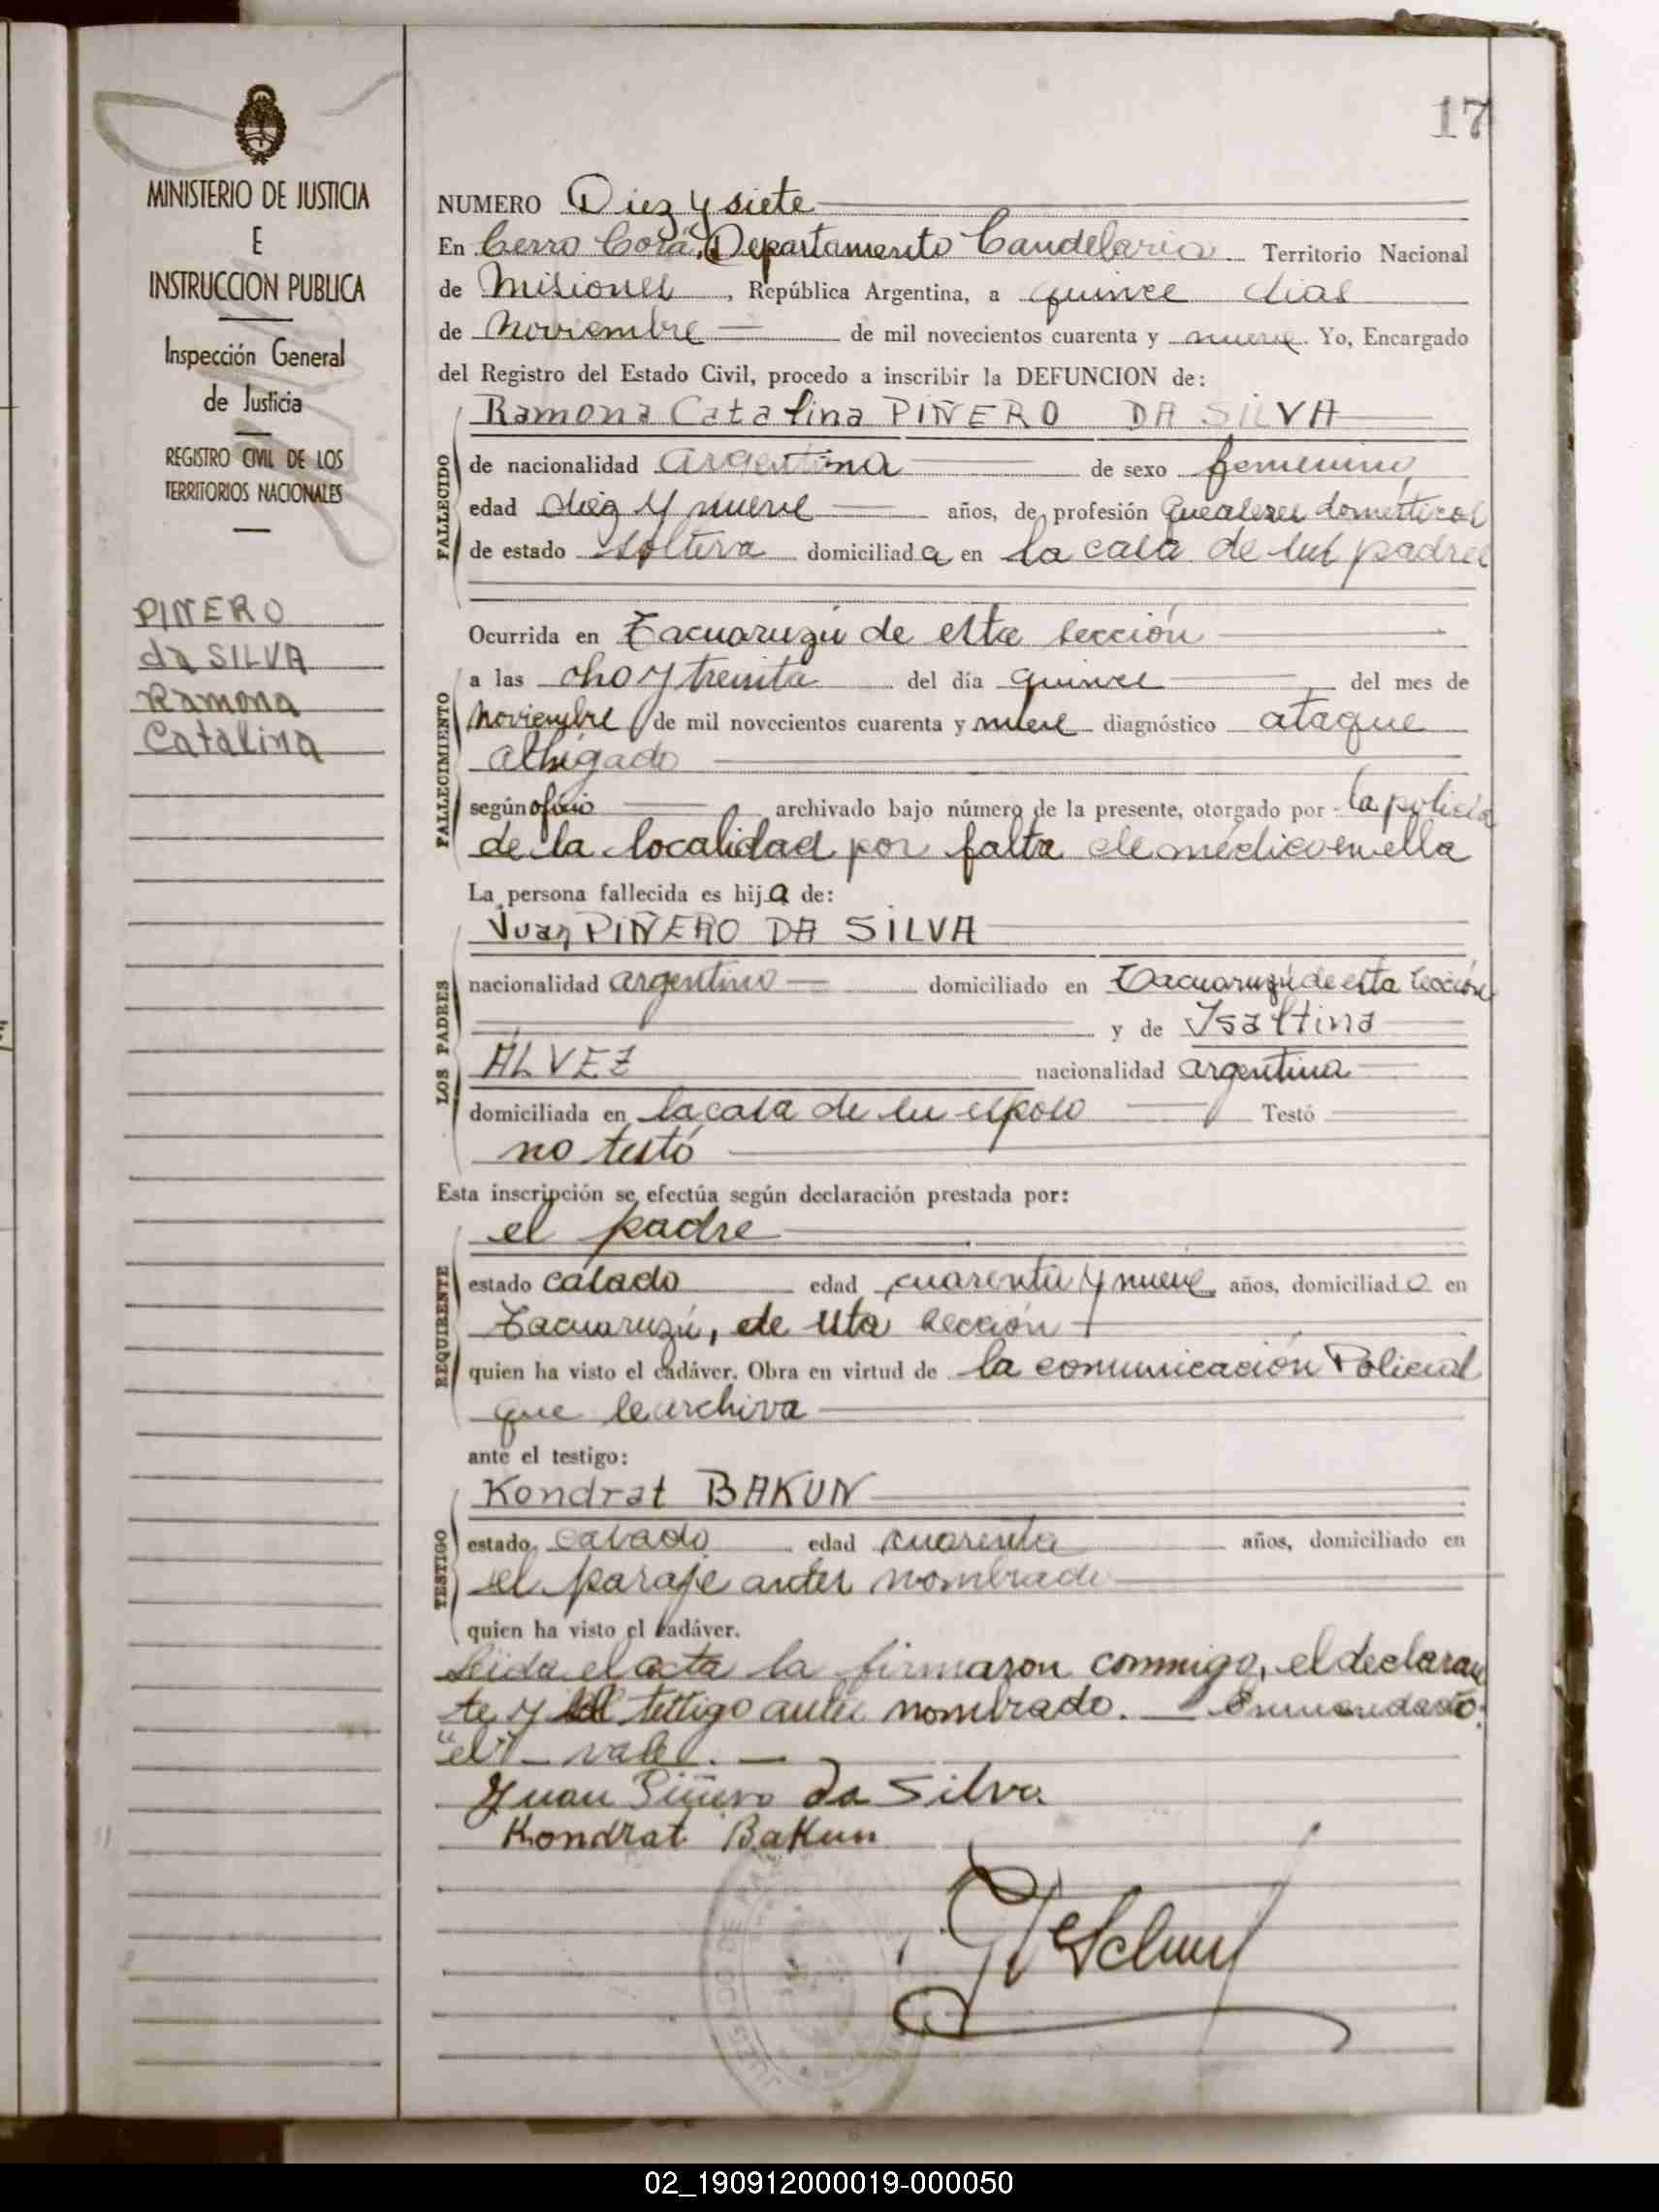 17
MINISTERIO DE JUSTICIA
E
INSTRUCCION PUBLICA
Inspección General
de Justicia
REGISTRO CIVIL DE LOS
TERRITORIOS NACIONALES
PIÑERO
da SILVA
Ramona
Catalina
NUMERO Diez y siete
En Cerro Corá, Departamento Candelaria Territorio Nacional
de Misiones, República Argentina, a quince dias
de Noviembre de mil novecientos cuarenta y nueve. Yo, Encargado
del Registro del Estado Civil, procedo a inscribir la DEFUNCION de:
Ramona Catalina PIÑERO DA SILVA
FALLECIDO
de nacionalidad argentina de sexo femenino
edad diez y nueve años, de profesión quealeres domésticos
de estado soltera domiciliada en la casa de sus padres
FALLECIMIENTO
Ocurrida en Tacuaruzú de esta sección
a las oho y treinta del día quince del mes de
Noviembre de mil novecientos cuarenta y nueve diagnóstico ataque
al higado
según oficio archivado bajo número de la presente, otorgado por la policia
de la localidad por falta de médico en ella
La persona fallecida es hija de:
LOS PADRES
Juan PIÑERO DA SILVA
nacionalidad argentino domiciliado en Tacuaruzú de esta sección
y de Isaltina
ALVEZ nacionalidad argentina
domiciliada en la casa de su esposo Testó
no testó
Esta inscripción se efectúa según declaración prestada por:
REQUIRENTE
el padre
estado casado edad cuarenta y nueve años, domiciliado en
Tacuaruzú, de esta sección
quien ha visto el cadáver. Obra en virtud de la comunicación Policial
que se archiva
ante el testigo:
TESTIGO
Kondrat BAKUN
estado casado edad cuarenta años, domiciliado en
el paraje antes nombrado
quien ha visto el cadáver.
Leida el acta la firmaron conmigo, el declaran
te y el testigo antes nombrado. — Enmendado:
"el" — vale. —
Juan Piñero da Silva
Kondrat Bakun
02_190912000019-000050